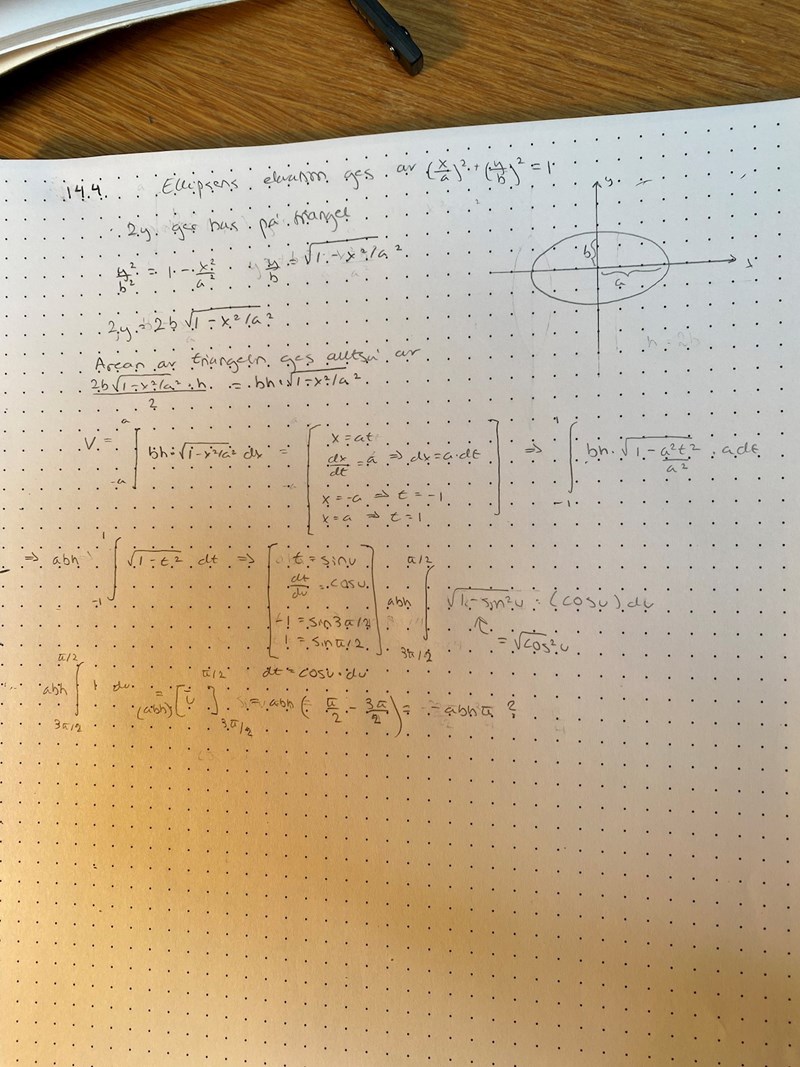 14.4. Ellipsens ekvation ges av (x/a)² + (y/b)² = 1
2y ger bas på triangel
y²/b² = 1 - x²/a²  y/b = √(1 - x²/a²)
2y = 2b√(1 - x²/a²)
Arean av triangeln ges alltså av
(2b√(1 - x²/a²) · h)/2 = bh · √(1 - x²/a²)
V = ∫_{-a}^{a} bh · √(1 - x²/a²) dx = [x = at
dx/dt = a ⇒ dx = a · dt
x = -a ⇒ t = -1
x = a ⇒ t = 1] ⇒ ∫_{-1}^{1} bh · √(1 - a²t²/a²) · a dt
⇒ abh ∫_{-1}^{1} √(1 - t²) dt ⇒ [t = sin u
dt/du = cos u
-1 = sin 3π/2
1 = sin π/2] abh ∫_{3π/2}^{π/2} √(1 - sin² u) · (cos u) du
= √cos² u
dt = cos u · du
abh ∫_{3π/2}^{π/2} 1 du = (abh) [u]_{3π/2}^{π/2} = abh (π/2 - 3π/2) = -abhπ ?
y
x
b
a